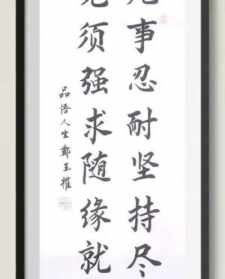 事忍耐坚持尽
须强求随缘就
品悟人生郑玉摧